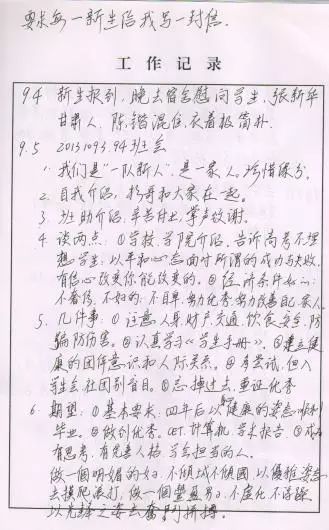 要求每一新生给我写一封信.
工作记录
9.4 新生报到, 晚去宿舍慰问学生, 张新华
甘肃人, 陈锴混住, 衣着极简朴.
9.5 20131093.94班会
1. 我们是“一队新人”, 是一家人, 珍惜缘分.
2. 自我介绍, 和大家在一起.
3. 班助介绍, 辛苦付出, 掌声致谢.
4. 谈两点: ①学校、学院介绍, 告诉高考不理
想学生: 以平和心态面对所谓的成功与失败,
有信心改变你能改变的. ②经济条件如何:
不奢侈, 不自卑, 努力优秀, 努力改善自己家人
5. 几件事: ①注意人身、财产、交通、饮食安全, 防
骗防伤害. ②认真学习《学生手册》. ③建立健
康的团体意识和人际关系. ④多尝试, 但入
学生会、社团别盲目. ⑤忘掉过去, 重证优秀
6. 期望: ①基本要求: 四年后以健康的姿态顺利
毕业. ②做到优秀. CET、计算机、学术报告. ③成为
有思考, 有完善人格, 学会担当的人.
做一个明媚的女子, 不倾城不倾国, 以优雅姿态
去摸爬滚打, 做一个男子, 不虚化不浮躁,
以先锋之姿去奋斗拼搏.